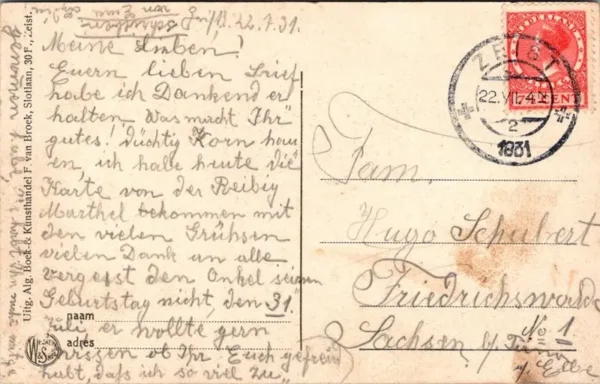 schreiben
von Euch
Zeist. 22.7.31.
Meine Lieben!
Euern lieben Brief
habe ich Dankend er
halten. Was macht Ihr
gutes! Düchtig Korn hau
en, ich habe heute die
Karte von der Reibey
Marthel bekommen mit
den vielen Grühsen
vielen Dank an alle
vergeist den Onkel seinen
Geburtstag nicht, den 31."
Juli, er wollte gern
wissen ob Ihr Euch gefreut
habt, dafs ich so viel zu"
naam
adrés
Uitg. Alg. Boek-& Kunsthandel F. van Broek, Slotlaan, 30 F., Zeist.
NEDERLAND
CENT
ZEIST
22.VII.74
2
1931
Fam.
Hugo Schubert
Friedrichswalde
No 1
Sachsen b/
a/ Elbe